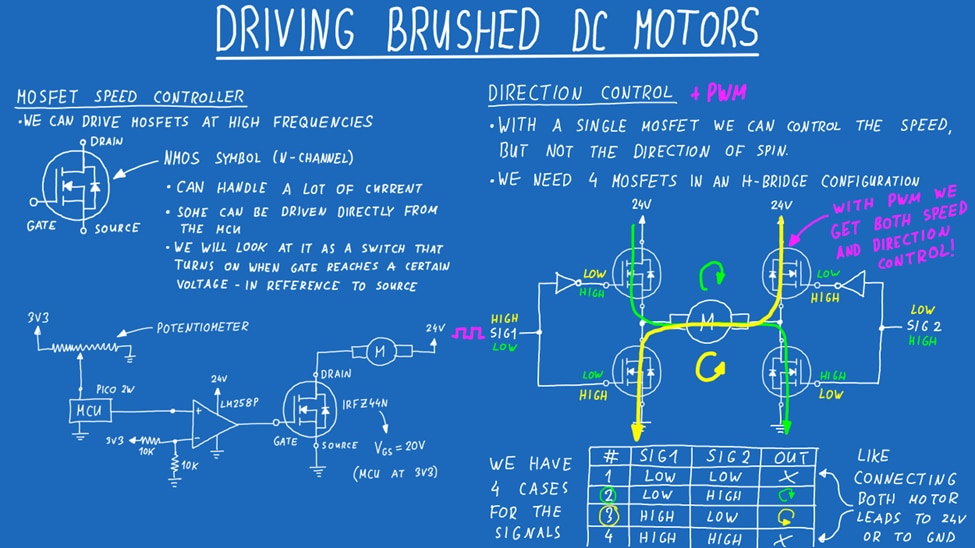 DRIVING BRUSHED DC MOTORS
MOSFET SPEED CONTROLLER
•WE CAN DRIVE MOSFETS AT HIGH FREQUENCIES
DRAIN
NMOS SYMBOL (N-CHANNEL)
• CAN HANDLE A LOT OF CURRENT
• SOME CAN BE DRIVEN DIRECTLY FROM
THE MCU
• WE WILL LOOK AT IT AS A SWITCH THAT
TURNS ON WHEN GATE REACHES A CERTAIN
VOLTAGE - IN REFERENCE TO SOURCE
GATE
SOURCE
3V3
POTENTIOMETER
PICO 2W
MCU
24V
LM258P
+
-
3V3
10K
10K
M
24V
DRAIN
IRFZ44N
GATE
SOURCE
VGS = 20V
(MCU AT 3V3)
DIRECTION CONTROL + PWM
•WITH A SINGLE MOSFET WE CAN CONTROL THE SPEED,
BUT NOT THE DIRECTION OF SPIN.
•WE NEED 4 MOSFETS IN AN H-BRIDGE CONFIGURATION
24V
24V
WITH PWM WE
GET BOTH SPEED
AND DIRECTION
CONTROL!
LOW
HIGH
LOW
HIGH
HIGH
SIG1
LOW
M
LOW
SIG 2
HIGH
LOW
HIGH
HIGH
LOW
WE HAVE
4 CASES
FOR THE
SIGNALS
# SIG1 SIG2 OUT
1 LOW LOW X
2 LOW HIGH
3 HIGH LOW
4 HIGH HIGH X
LIKE
CONNECTING
BOTH MOTOR
LEADS TO 24V
OR TO GND